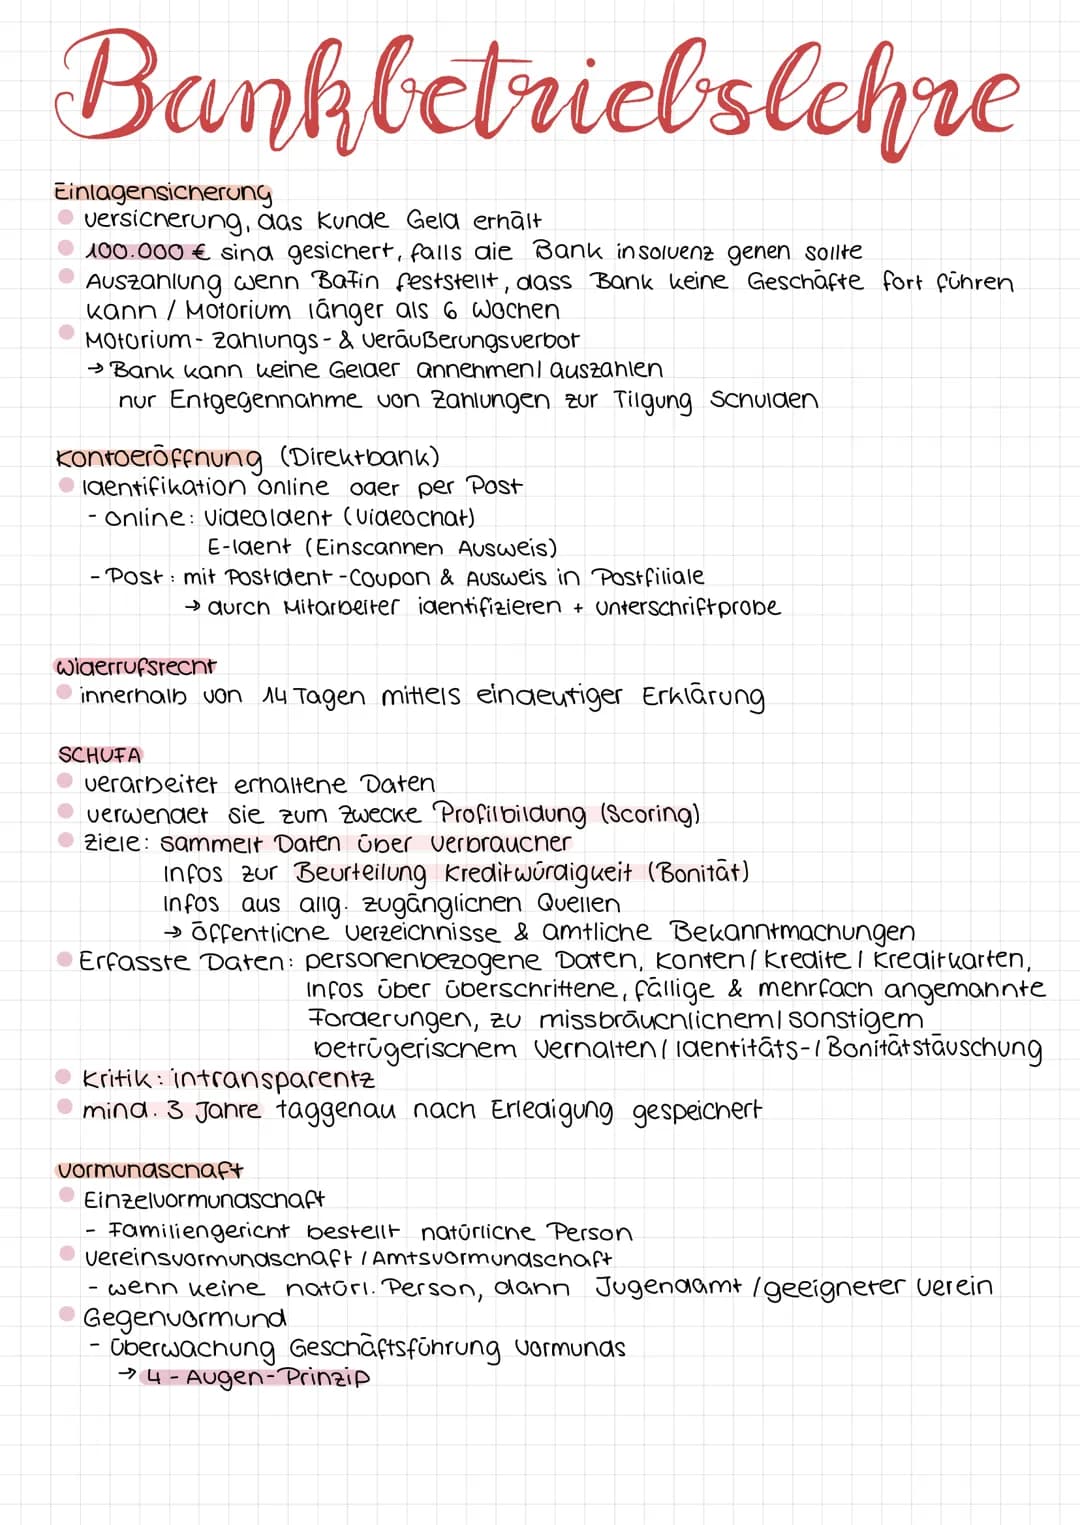 Bankbetriebslehre
Einlagensicherung
versicherung, das Kunde Geld erhält
100.000 € sind gesichert, falls die Bank insolvenz gehen sollte
Auszahlung wenn BaFin feststellt, dass Bank keine Geschäfte fort führen
kann / Motorium länger als 6 Wochen
Motorium - Zahlungs - & veräußerungsverbot
→ Bank kann keine Gelder annehmen/ auszahlen
nur Entgegennahme von Zahlungen zur Tilgung Schulden
Kontoeröffnung (Direktbank)
Identifikation online oder per Post
- Online: VideoIdent (Videochat)
E-Ident (Einscannen Ausweis)
- Post: mit PostIdent-Coupon & Ausweis in Postfiliale
→ durch Mitarbeiter identifizieren + Unterschriftprobe
Widerrufsrecht
innerhalb von 14 Tagen mittels eindeutiger Erklärung
SCHUFA
verarbeitet erhaltene Daten
verwendet sie zum Zwecke Profilbildung (Scoring)
Ziele: sammelt Daten über Verbraucher
Infos zur Beurteilung Kreditwürdigkeit (Bonität)
Infos aus allg. zugänglichen Quellen
→ öffentliche Verzeichnisse & amtliche Bekanntmachungen
Erfasste Daten: personenbezogene Daten, Konten/ Kredite / Kreditkarten,
Infos über überschrittene, fällige & mehrfach angemahnte
Forderungen, zu missbräuchlichem/ sonstigem
betrügerischem Verhalten/ Identitäts-/ Bonitätstäuschung
Kritik: intransparentz
mind. 3 Jahre taggenau nach Erledigung gespeichert
Vormundschaft
Einzelvormundschaft
- Familiengericht bestellt natürliche Person
Vereinsvormundschaft / Amtsvormundschaft
- wenn keine natürl. Person, dann Jugendamt / geeigneter Verein
Gegenvormund
- Überwachung Geschäftsführung Vormunds
→ 4 - Augen-Prinzip